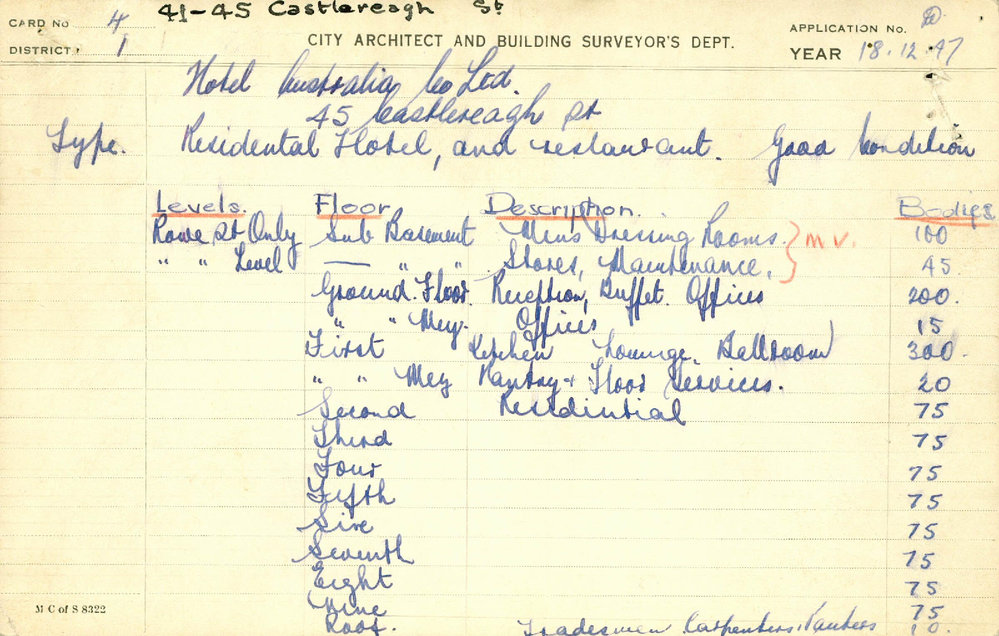 41-45 Castlereagh St
CARD No 4
DISTRICT 1
CITY ARCHITECT AND BUILDING SURVEYOR'S DEPT.
APPLICATION No.
YEAR 18.12.47
Hotel Australia Co Ltd.
45 Castlereagh St
Type. Residental Hotel, and restaurant. Good Condition
Levels. Floor Description. Bodies.
Rowe St Only Sub Basement Mens Dressing Rooms. } M.V. 100
" " Level — " " Stores, Maintenance, 45.
Ground Floor. Reception, Buffet. Offices 200.
" " Mez. Offices 15
First Kitchen Lounge, Ballroom 300.
" " Mez Pantry + Floor Services. 20
Second Residential 75
Third 75
Four 75
Fifth 75
Sixe 75
Seventh 75
Eight 75
Nine 75
Roof. Tradesmen Carpenters, 10.
M C of S 8322